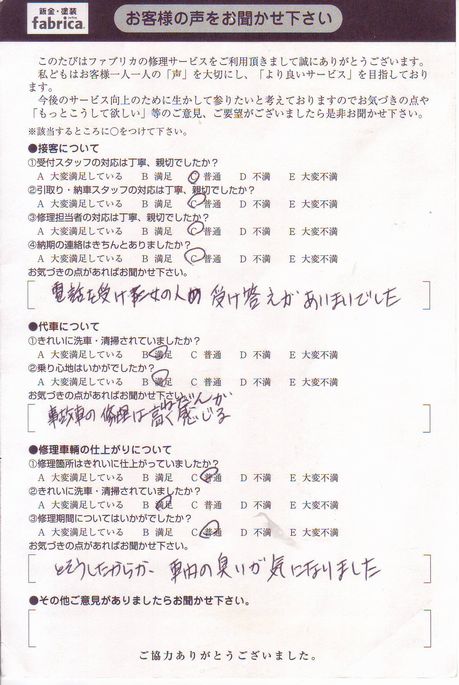 鈑金・塗装
fabrica.
お客様の声をお聞かせ下さい
このたびはファブリカの修理サービスをご利用頂きまして誠にありがとうございます。
私どもはお客様一人一人の「声」を大切にし、「より良いサービス」を目指しており
ます。
今後のサービス向上のために生かして参りたいと考えておりますのでお気づきの点や
「もっとこうして欲しい」等のご意見、ご要望がございましたら是非お聞かせ下さい。
※該当するところに○をつけて下さい。
●接客について
①受付スタッフの対応は丁寧、親切でしたか？
A 大変満足している B 満足 C 普通 D 不満 E 大変不満
②引取り・納車スタッフの対応は丁寧、親切でしたか？
A 大変満足している B 満足 C 普通 D 不満 E 大変不満
③修理担当者の対応は丁寧、親切でしたか？
A 大変満足している B 満足 C 普通 D 不満 E 大変不満
④納期の連絡はきちんとありましたか？
A 大変満足している B 満足 C 普通 D 不満 E 大変不満
お気づきの点があればお聞かせ下さい。
電話を受け 女の人の 受け答えが あいまいでした
●代車について
①きれいに洗車・清掃されていましたか？
A 大変満足している B 満足 C 普通 D 不満 E 大変不満
②乗り心地はいかがでしたか？
A 大変満足している B 満足 C 普通 D 不満 E 大変不満
お気づきの点があればお聞かせ下さい。
ねだんが
事故車の 修理は高く感じる
●修理車輌の仕上がりについて
①修理箇所はきれいに仕上がっていましたか？
A 大変満足している B 満足 C 普通 D 不満 E 大変不満
②きれいに洗車・清掃されていましたか？
A 大変満足している B 満足 C 普通 D 不満 E 大変不満
③修理期間についてはいかがでしたか？
A 大変満足している B 満足 C 普通 D 不満 E 大変不満
お気づきの点があればお聞かせ下さい。
とそうしたからか 車内の臭いが 気になりました
●その他ご意見がありましたらお聞かせ下さい。
ご協力ありがとうございました。